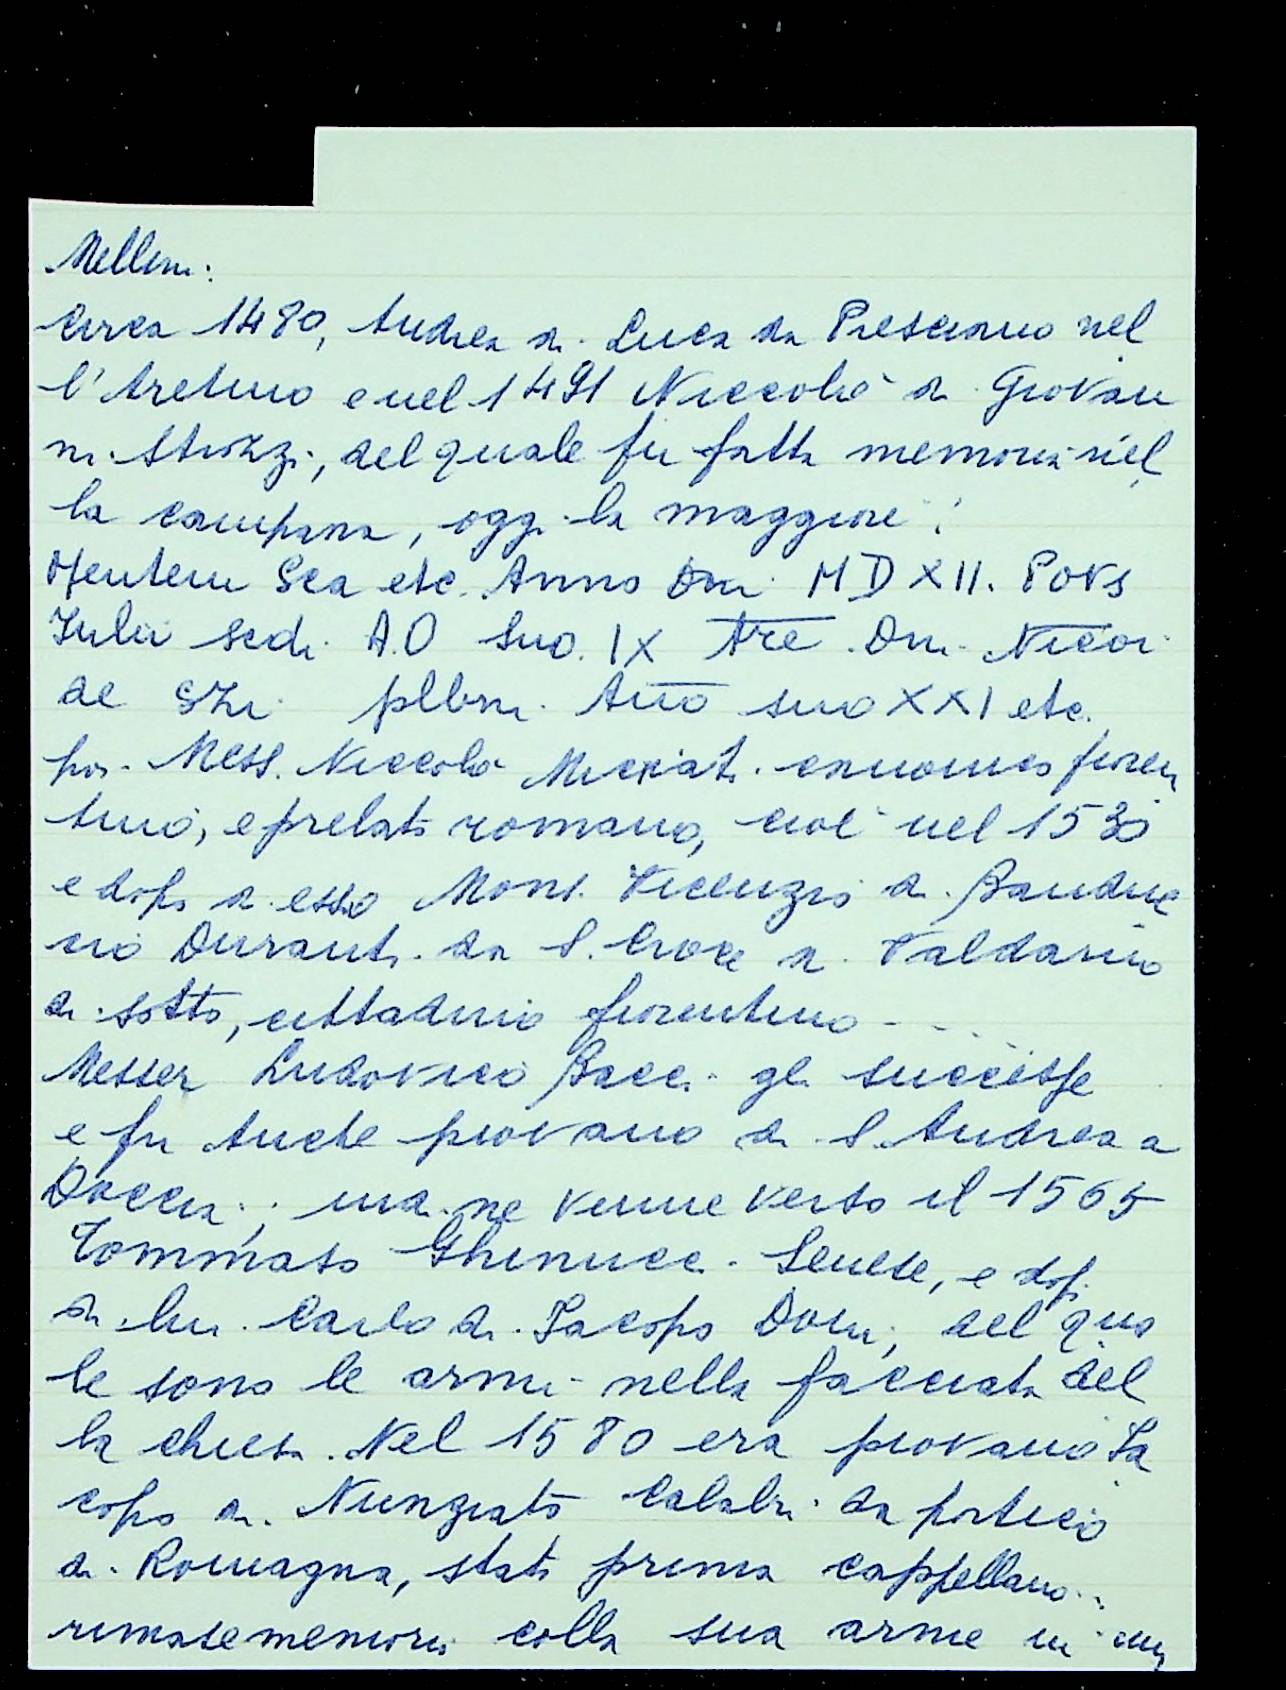 Mellini:
Circa 1480, Andrea di Luca da Presciano nel
l'Aretino e nel 1491 Niccolò di Giovan
ni Strozzi, del quale fu fatta memoria nel
la campana, oggi la maggiore:
Mentem Sca etc. Anno Dni MDXII. PONS
Iulii sedi. A.D suo. IX Are. Dni. Nicoi
de STri plbni. Ano suo XXI etc.
poi Mess. Niccolò canonico fioren
tino, e prelato romano, cioè nel 1530
e dopo di esso Mons. Vicenzio di Banduc
cio Duranti da S. Croce di Valdarno
di sotto, cittadino fiorentino - - -
Messer Ludovico Bacci gli successe
e fu Anche piovano di S. Andrea a
Doccia; ma ne venne verso il 1565
Tommaso Ghinucci Senese, e dopo
di lui Carlo di Iacopo Doni, del qua
le sono le armi nella facciata del
la chiesa. Nel 1580 era piovano Ia
copo di Nunziato Calabri da portico
di Romagna, stato prima cappellano..
rimase memoria colla sua arme in un